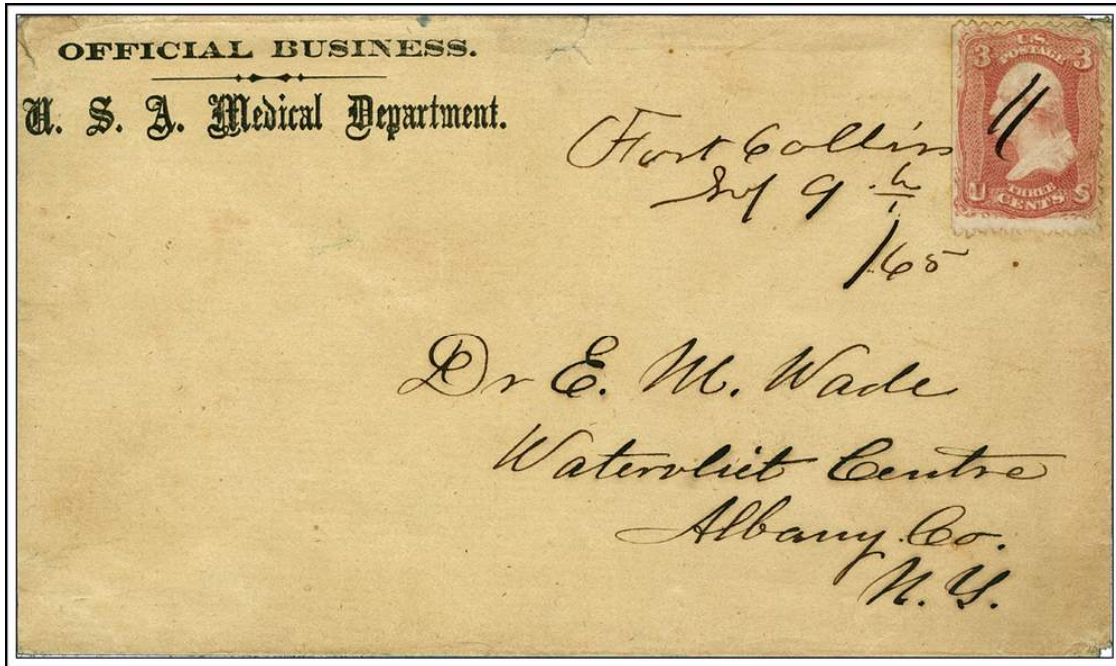 OFFICIAL BUSINESS.
U. S. A. Medical Department.
3 U.S. POSTAGE 3
U THREE CENTS S
Fort Collins
9
/65
Dr E. M. Wade
Watervliet Centre
Albany Co.
N. Y.